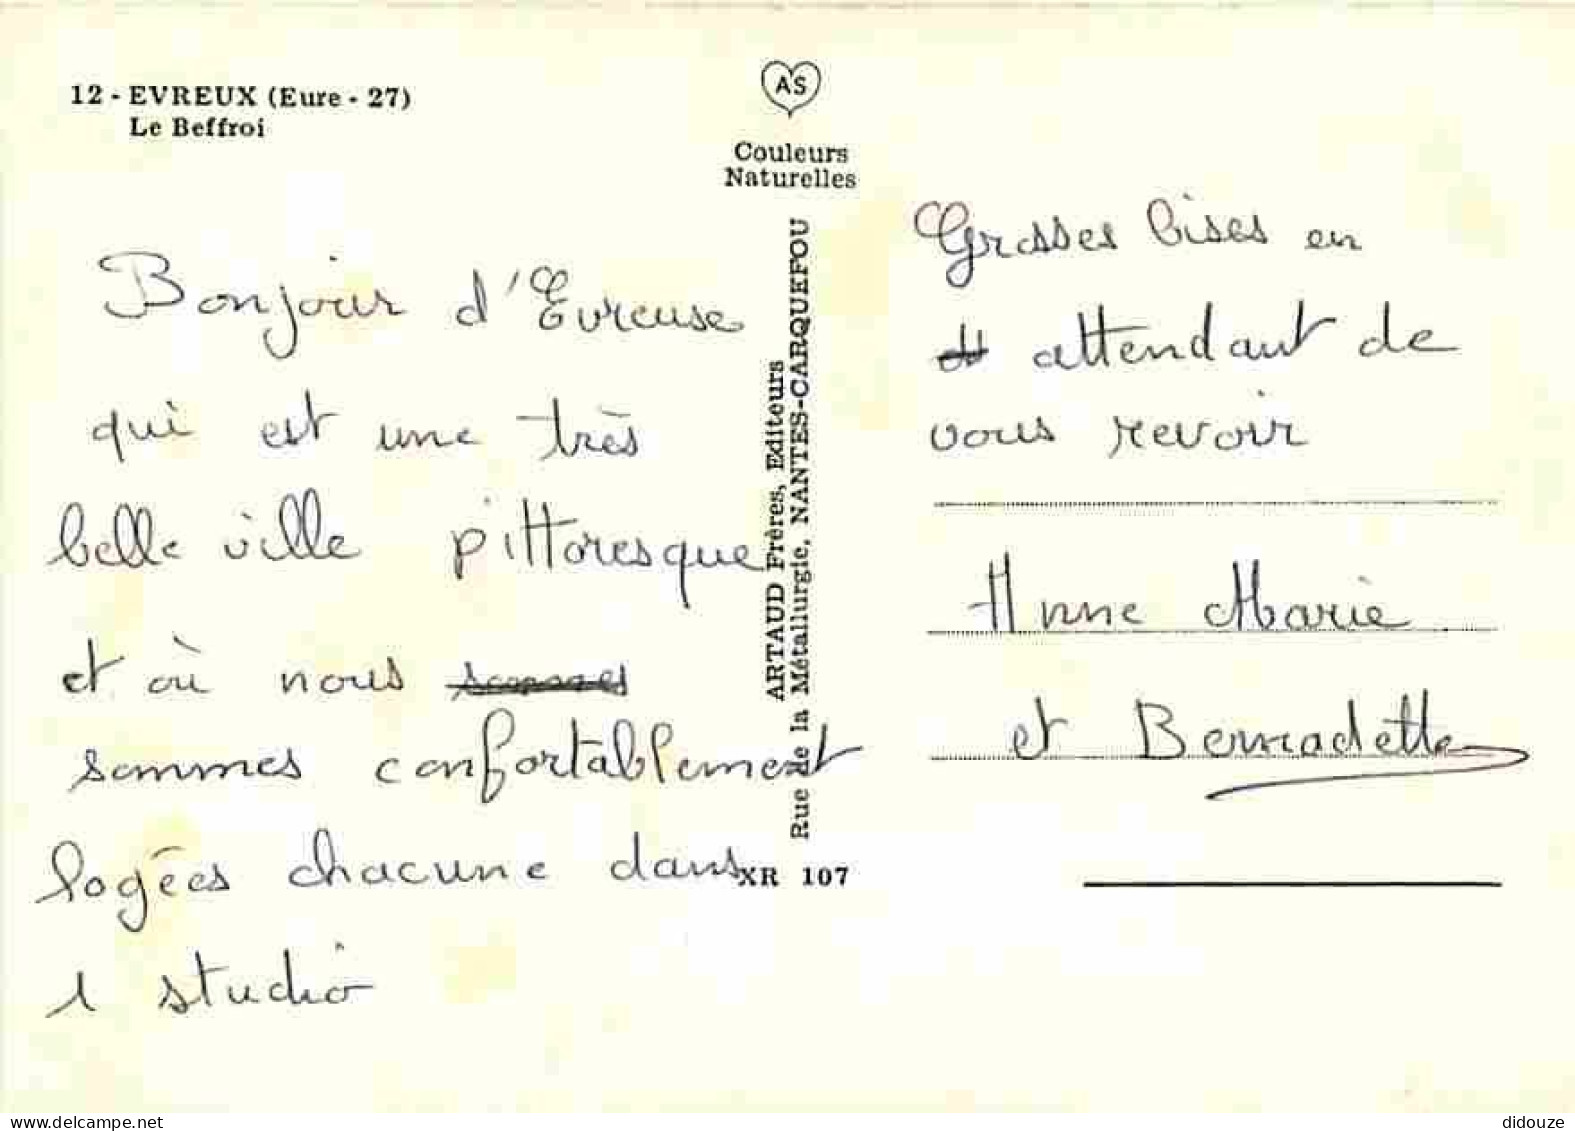 12 - EVREUX (Eure - 27)
Le Beffroi
Bonjour d'Evreuse
qui est une très
belle ville pittoresque
et où nous sommes
sommes confortablement
logées chacune dans
1 studio
AS
Couleurs
Naturelles
ARTAUD Frères, Editeurs
Rue de la Métallurgie, NANTES-CARQUEFOU
XR 107
Grosses bises en
attendant de
vous revoir
Anne Marie
et Bernadette
delcampe.net
didouze